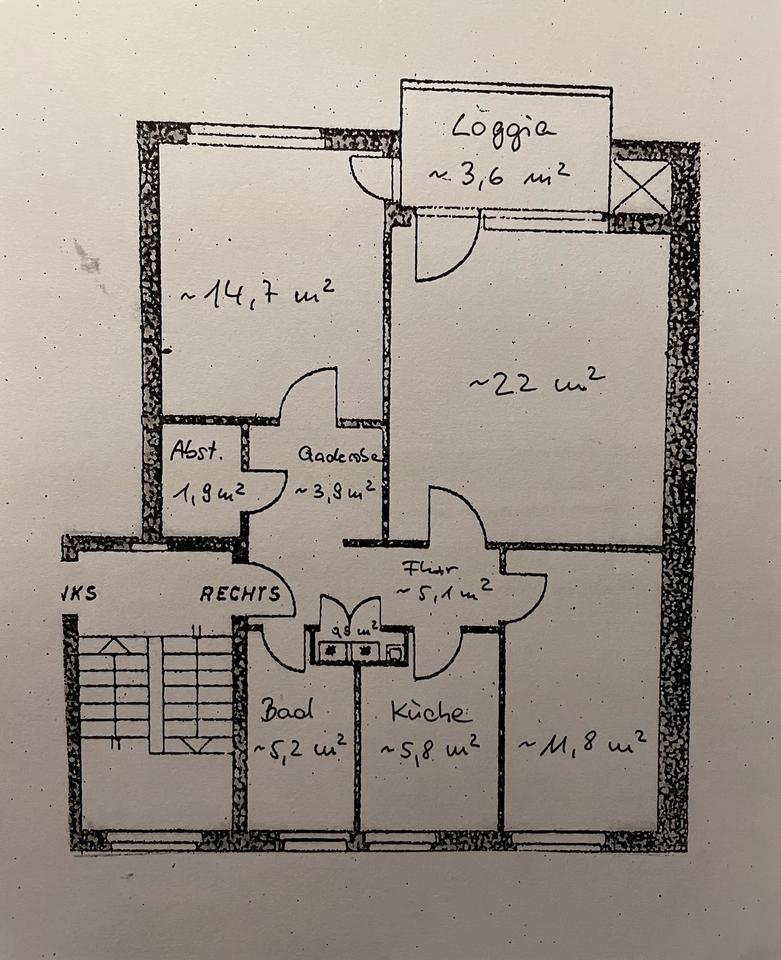 Loggia
~ 3,6 m²
~ 14,7 m²
~ 22 m²
Abst.
1,9 m²
Gaderobe
~ 3,9 m²
Flur
~ 5,1 m²
IKS
RECHTS
0,5 m²
Bad
~ 5,2 m²
Küche
~ 5,8 m²
~ 11,8 m²